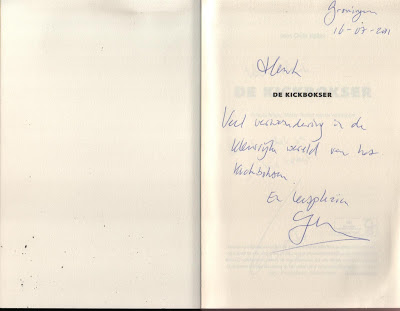 Groningen
16-07-2011
Henk
DE KICKBOKSER
Veel verwondering in de
kleurrijke wereld van het
kickboksen.
En leesplezier